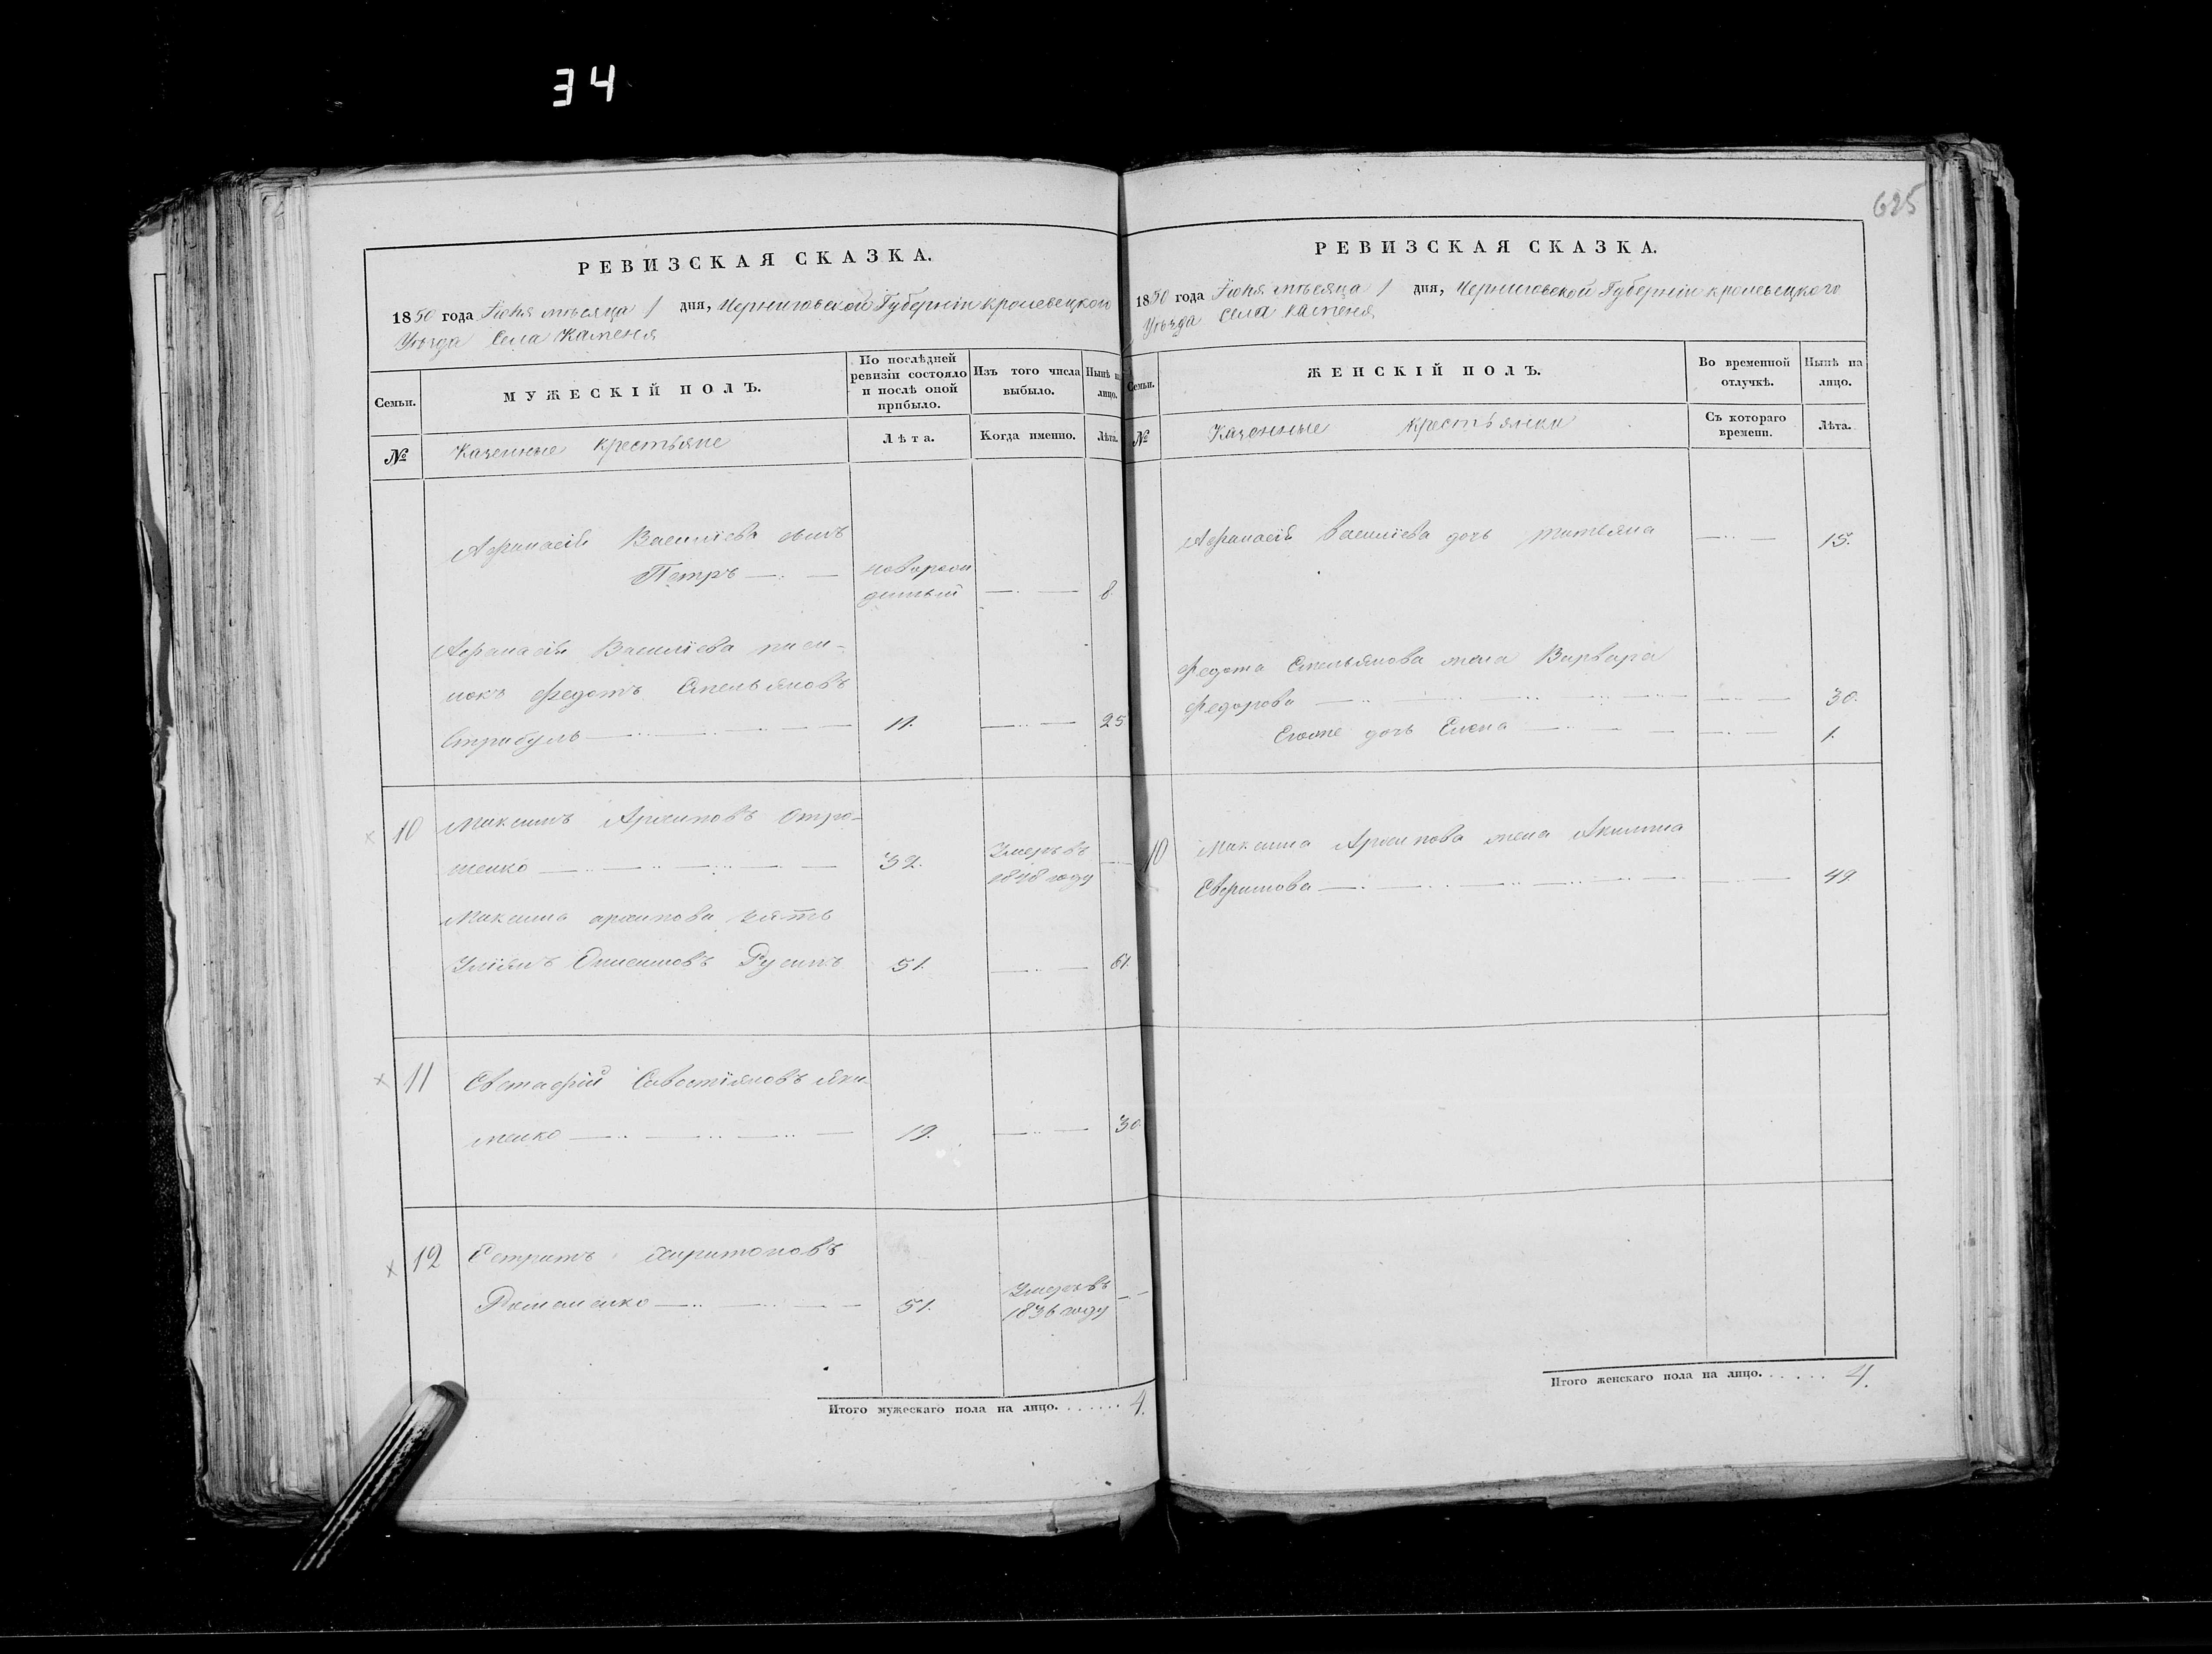 34
625
РЕВИЗСКАЯ СКАЗКА.
1850 года Іюня мѣсяца 1 дня, Черниговской Губерніи кролевецкого
Уѣзда Села Каменя
Семьи.
МУЖЕСКІЙ ПОЛЪ.
По послѣдней ревизіи состояло и послѣ оной прибыло.
Изъ того числа выбыло.
Нынѣ на лицо.
№
Казенные крестьяне
Лѣта.
Когда именно.
Лѣта.
Афанасія Василіева сынъ
Петръ
новорож
денный
8
Афанасія Василіева
Федотъ Емельяновъ
11.
25.
10
Максимъ Архиповъ
32.
Умеръ въ
1848 году
Максима архипова зять
Русинъ
51.
61.
11
Евстафій Савостіяновъ
менко
19.
30
12
Харитоновъ
Романенко
51.
Умеръ въ
1836 году
Итого мужескаго пола на лицо. 4.
РЕВИЗСКАЯ СКАЗКА.
1850 года Іюня мѣсяца 1 дня, Черниговской Губерніи кролевецкого
Уѣзда Села каменя
Семьи.
ЖЕНСКІЙ ПОЛЪ.
Во временной отлучкѣ.
Нынѣ на лицо.
№
Казенные крестьянки
Съ котораго времени.
Лѣта.
Афанасія Василіева дочь татьяна
15.
Федота Емельянова жена Варвара
Федорова
30.
Егоже дочь Елена
1.
10
Максима Архипова жена Акилина
49.
Итого женскаго пола на лицо. 4.